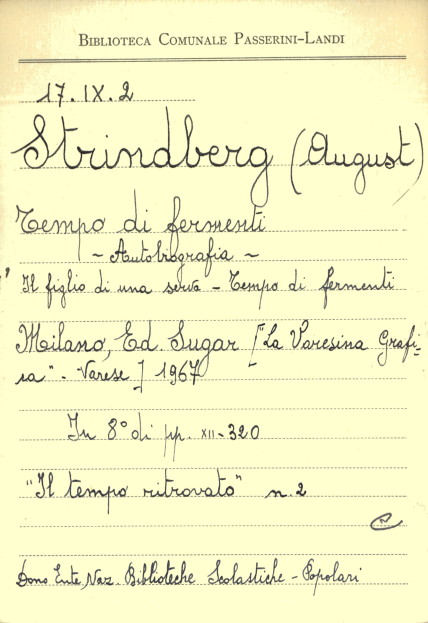 BIBLIOTECA COMUNALE PASSERINI-LANDI
17. IX. 2
Strindberg (August)
Tempo di fermenti
~ Autobiografia ~
" Il figlio di una serva - Tempo di fermenti
Milano, Ed. Sugar ["La Varesina Grafi=
ca" - Varese] 1967
In 8° di pp. XII-320
"Il tempo ritrovato" n. 2
Dono Ente Naz. Biblioteche Scolastiche - Popolari